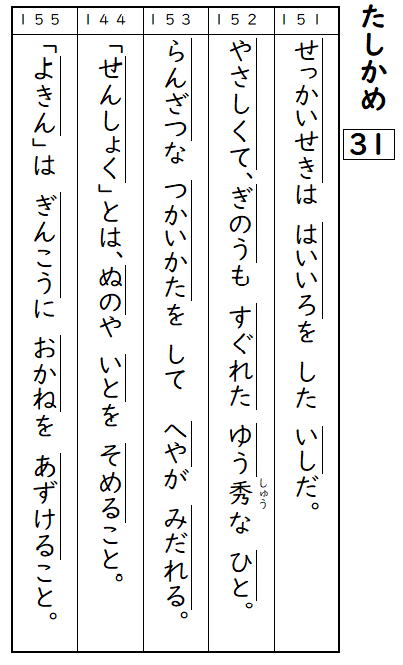 たしかめ
31
151
せっかいせきは はいいろを した いしだ。
152
やさしくて、ぎのうも すぐれた ゆう秀な ひと。
しゅう
153
らんざつな つかいかたを して へやが みだれる。
144
「せんしょく」とは、ぬのや いとを そめること。
155
「よきん」は ぎんこうに おかねを あずけること。